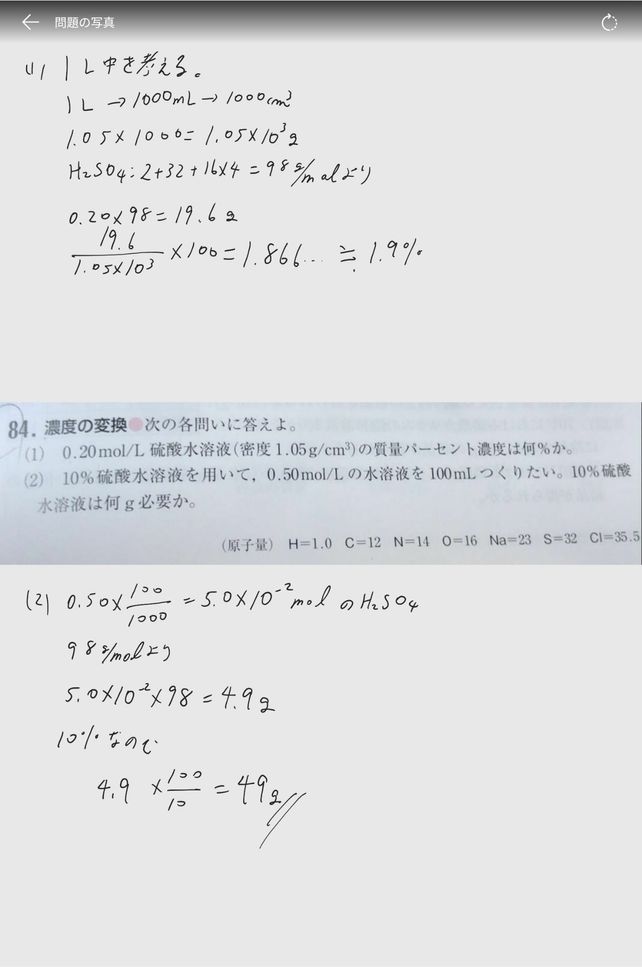 問題の写真
(1) 1L中を考える。
1L → 1000mL → 1000cm³
1.05×1000=1.05×10³g
H₂SO₄:2+32+16×4=98g/molより
0.20×98=19.6g
19.6/1.05×10³ ×100=1.866… ≒ 1.9%
84. 濃度の変換●次の各問いに答えよ。
(1) 0.20mol/L 硫酸水溶液(密度 1.05g/cm³)の質量パーセント濃度は何%か。
(2) 10%硫酸水溶液を用いて, 0.50mol/Lの水溶液を100mLつくりたい。10%硫酸
水溶液は何g必要か。
(原子量) H=1.0 C=12 N=14 O=16 Na=23 S=32 Cl=35.5
(2) 0.50×100/1000 =5.0×10⁻²mol のH₂SO₄
98g/molより
5.0×10⁻²×98=4.9g
10%なので
4.9 ×100/10 =49g